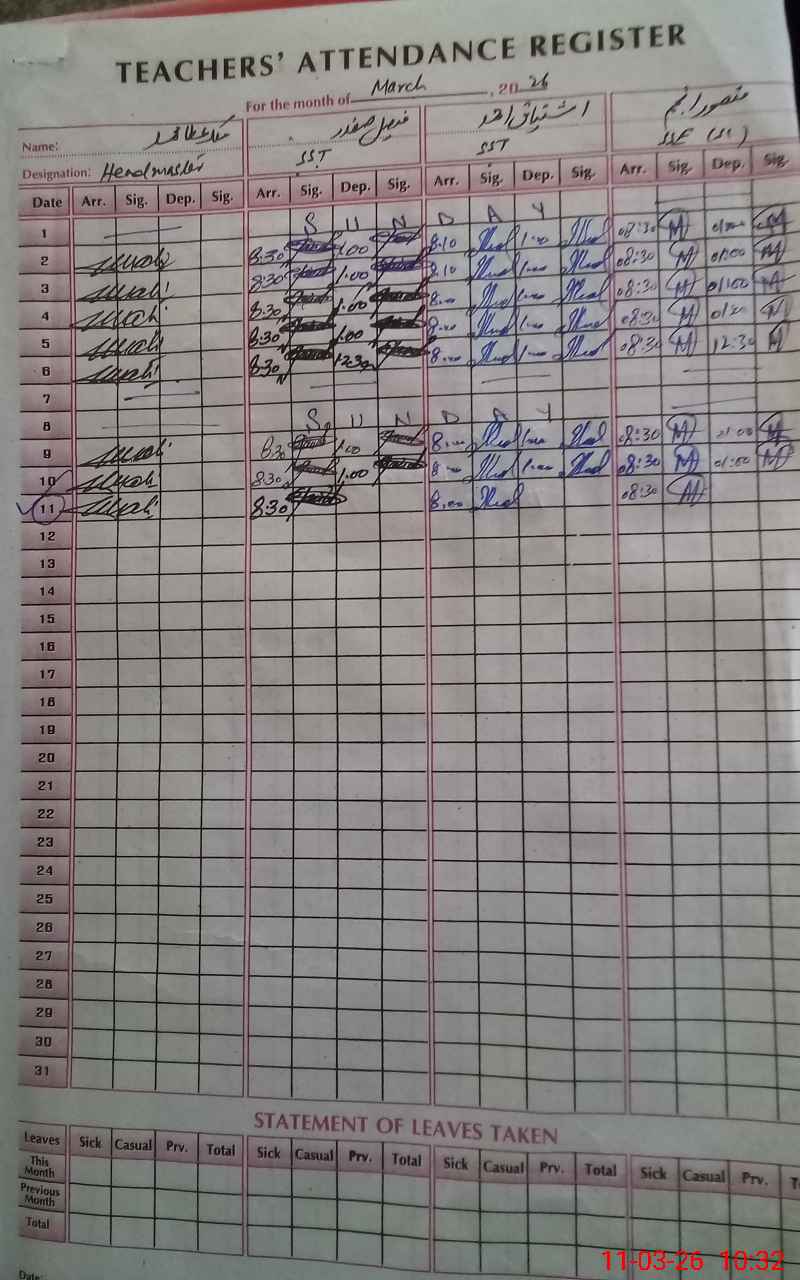 TEACHERS' ATTENDANCE REGISTER
For the month of March, 2026
Name: فیصل صفدر اشتیاق احمد منصور انجم
Designation: Headmaster SST SST SSE
Date Arr. Sig. Dep. Sig. Arr. Sig. Dep. Sig. Arr. Sig. Dep. Sig. Arr. Sig. Dep. Sig.
1 S U N D A Y
2 8:30 1.00 8.10 1.00 08:30
3 8:30 1.00 8.10 1.00 08:30 01:00
4 8:30 1.00 8.00 1.00 08:30 01:00
5 8:30 1.00 8.00 1.00 08:30
6 8:30 12.30 8.00 1.00 08:30 12:30
7
8 S U N D A Y
9 8.30 1.00 8.00 1.00 08:30 01:00
10 8:30 1.00 8.00 1.00 08:30 01:00
11 8:30 8.00 08:30
12
13
14
15
16
17
18
19
20
21
22
23
24
25
26
27
28
29
30
31
STATEMENT OF LEAVES TAKEN
Leaves Sick Casual Prv. Total Sick Casual Prv. Total Sick Casual Prv. Total Sick Casual Prv.
This Month
Previous Month
Total
Date:
11-03-26 10:32